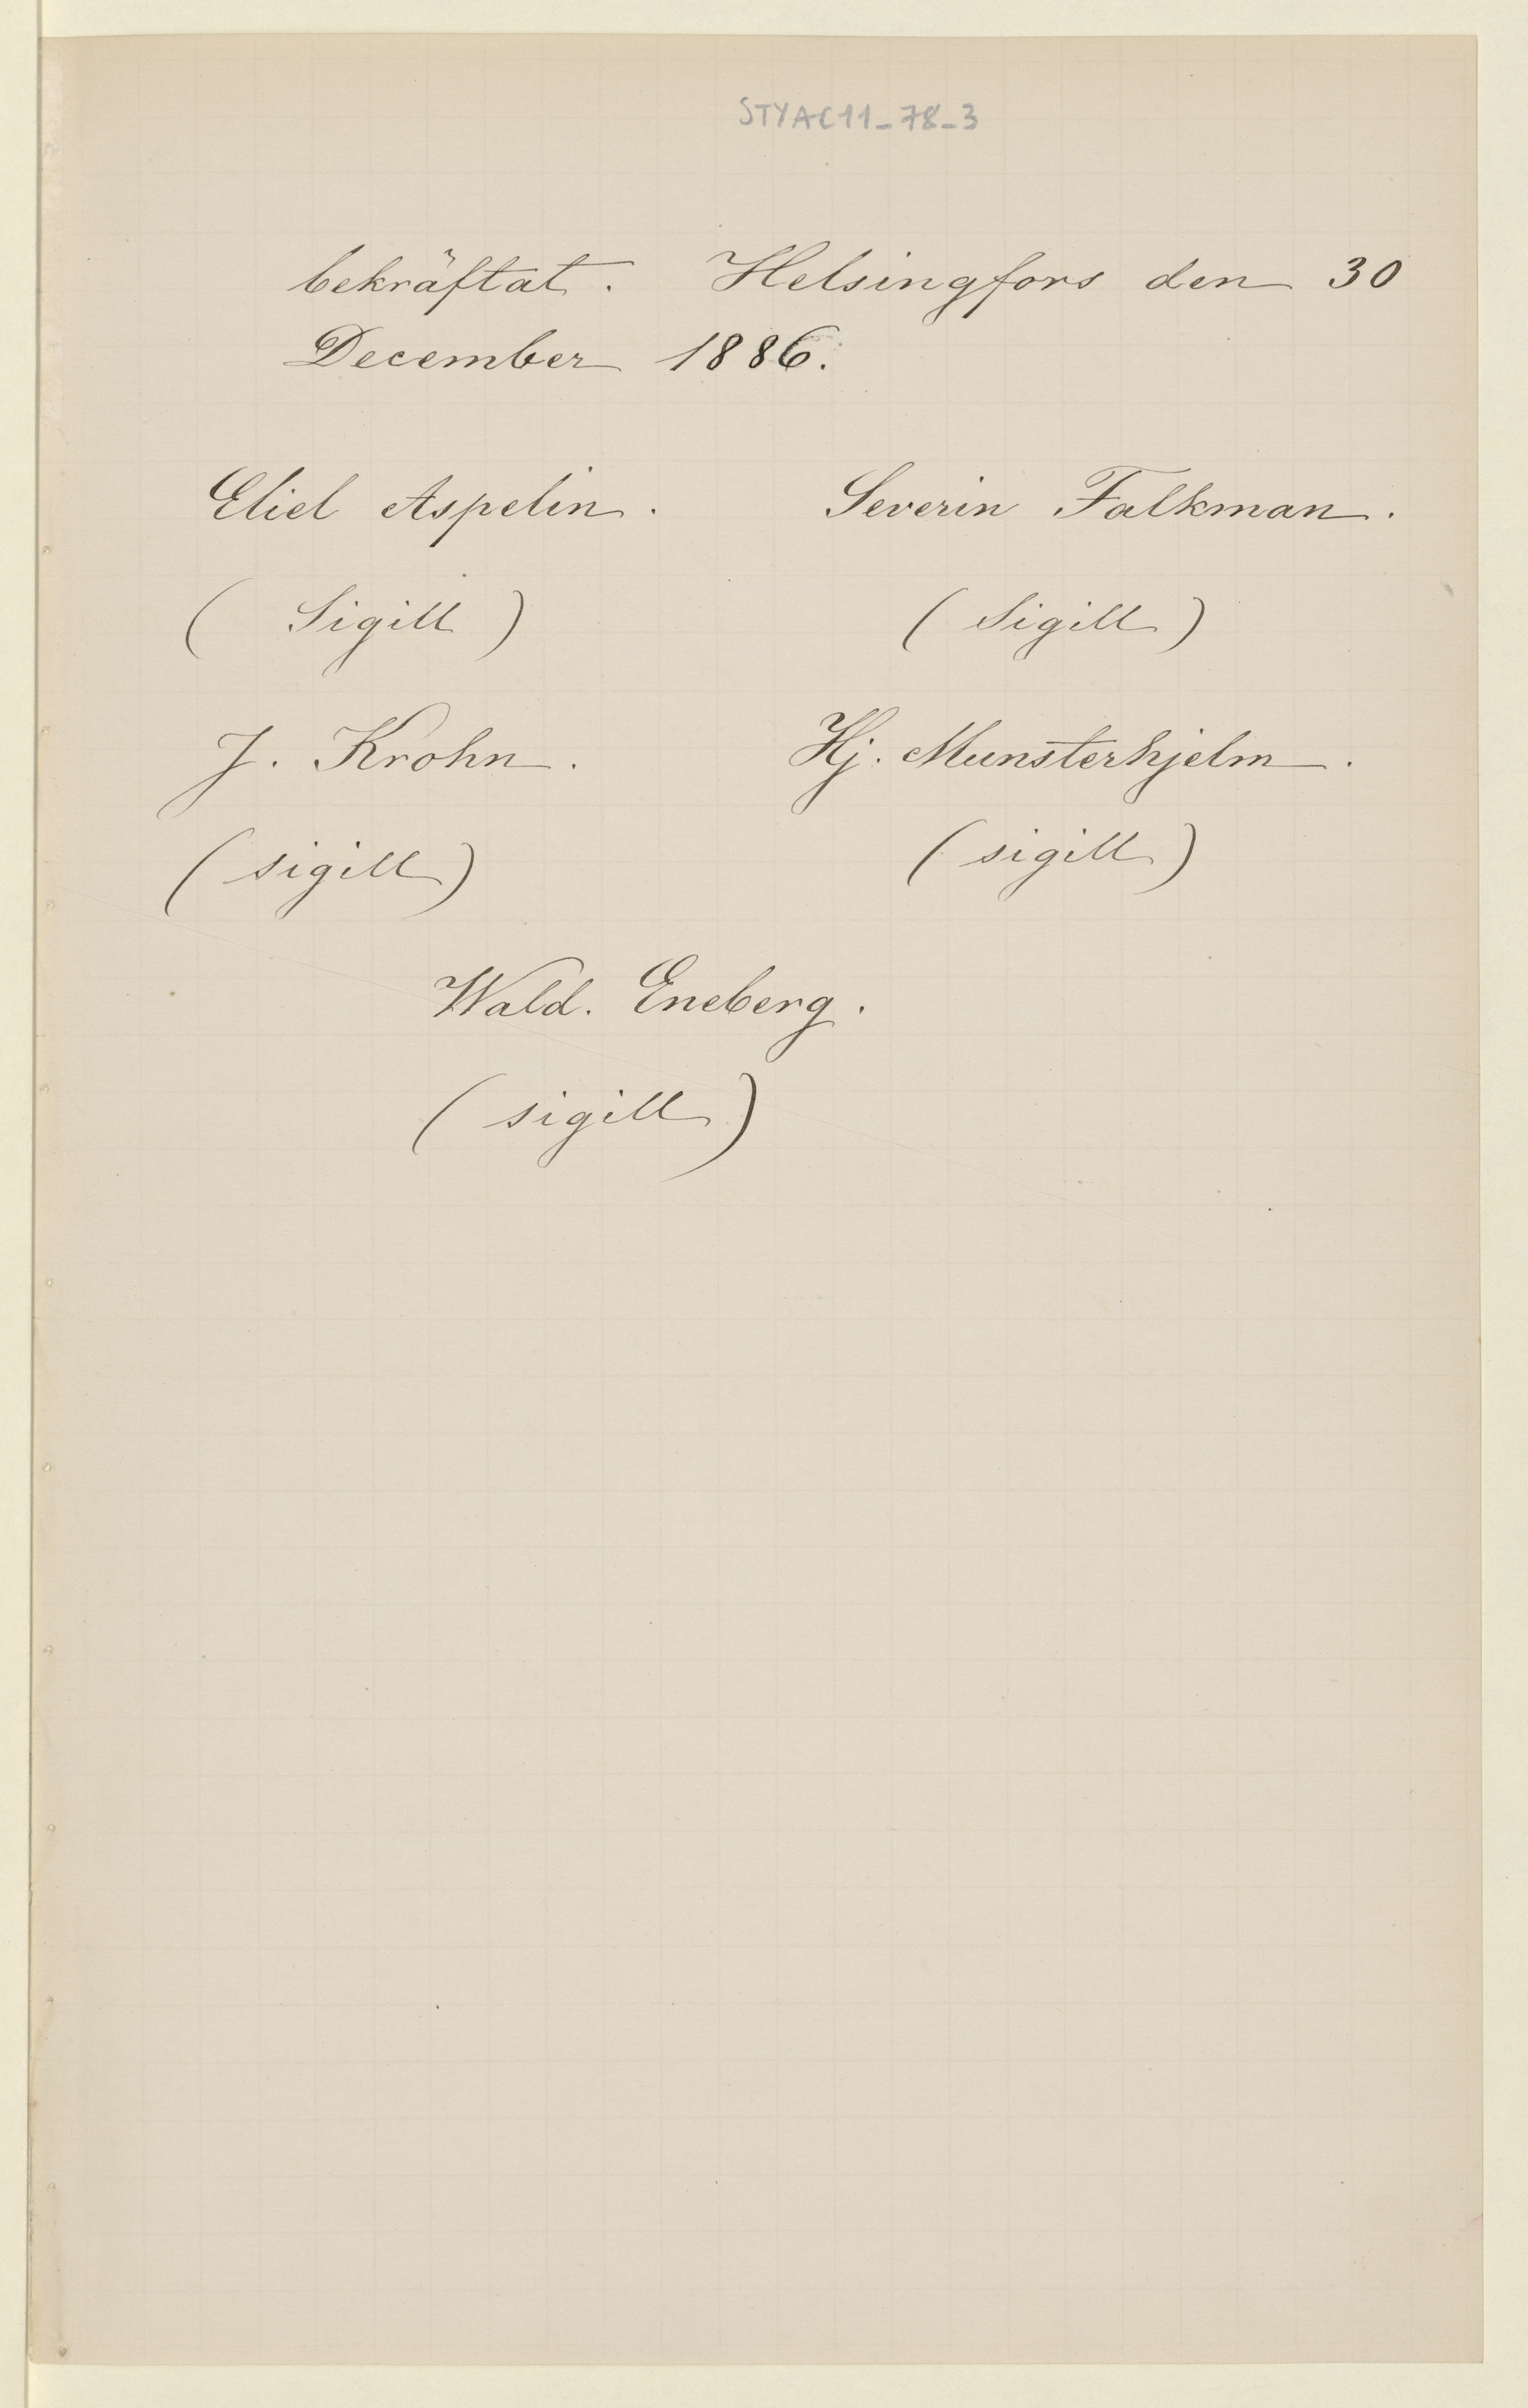 STYAC11_78_3
bekräftat. Helsingfors den 30
December 1886.
Eliel Aspelin. Severin Falkman.
(Sigill) (Sigill)
J. Krohn. Hj. Munsterhjelm.
(sigill) (sigill)
Wald. Eneberg.
(sigill)